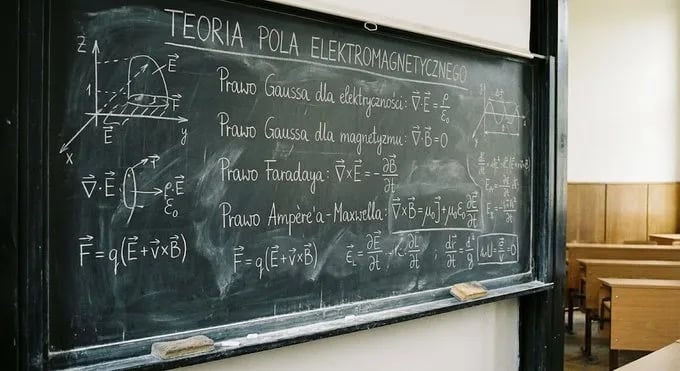 TEORIA POLA ELEKTROMAGNETYCZNEGO
Prawo Gaussa dla elektryczności: ∇⃗·E⃗ = ρ/ε₀
Prawo Gaussa dla magnetyzmu: ∇⃗·B⃗ = 0
Prawo Faradaya: ∇⃗×E⃗ = −∂B⃗/∂t
Prawo Ampère'a-Maxwella: ∇⃗×B⃗ = μ₀J⃗ + μ₀ε₀ ∂E⃗/∂t
z
E⃗
1
F⃗
E⃗
y
x
∇⃗·E⃗
F⃗ = q(E⃗+v⃗×B⃗)
F⃗ = q(E⃗+v⃗×B⃗)